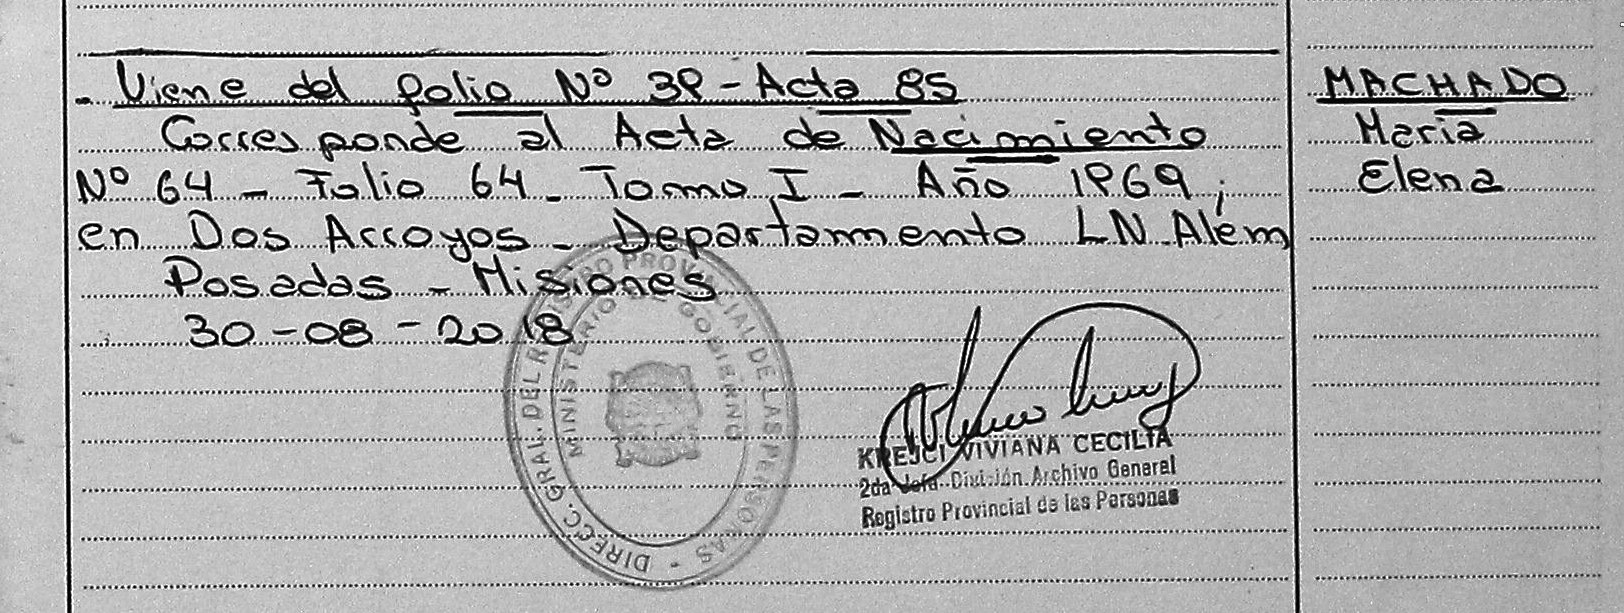 - Viene del folio Nº 39 - Acta 85
Corresponde al Acta de Nacimiento
Nº 64 - Folio 64 - Tomo I - Año 1969;
en Dos Arroyos - Departamento LN. Além
Posadas - Misiones
30-08-2018
MACHADO
Maria
Elena
DIRECC. GRAL. DEL REGISTRO PROVINCIAL DE LAS PERSONAS -
MINISTERIO DE GOBIERNO
KREJCI VIVIANA CECILIA
2da Jefa División Archivo General
Registro Provincial de las Personas